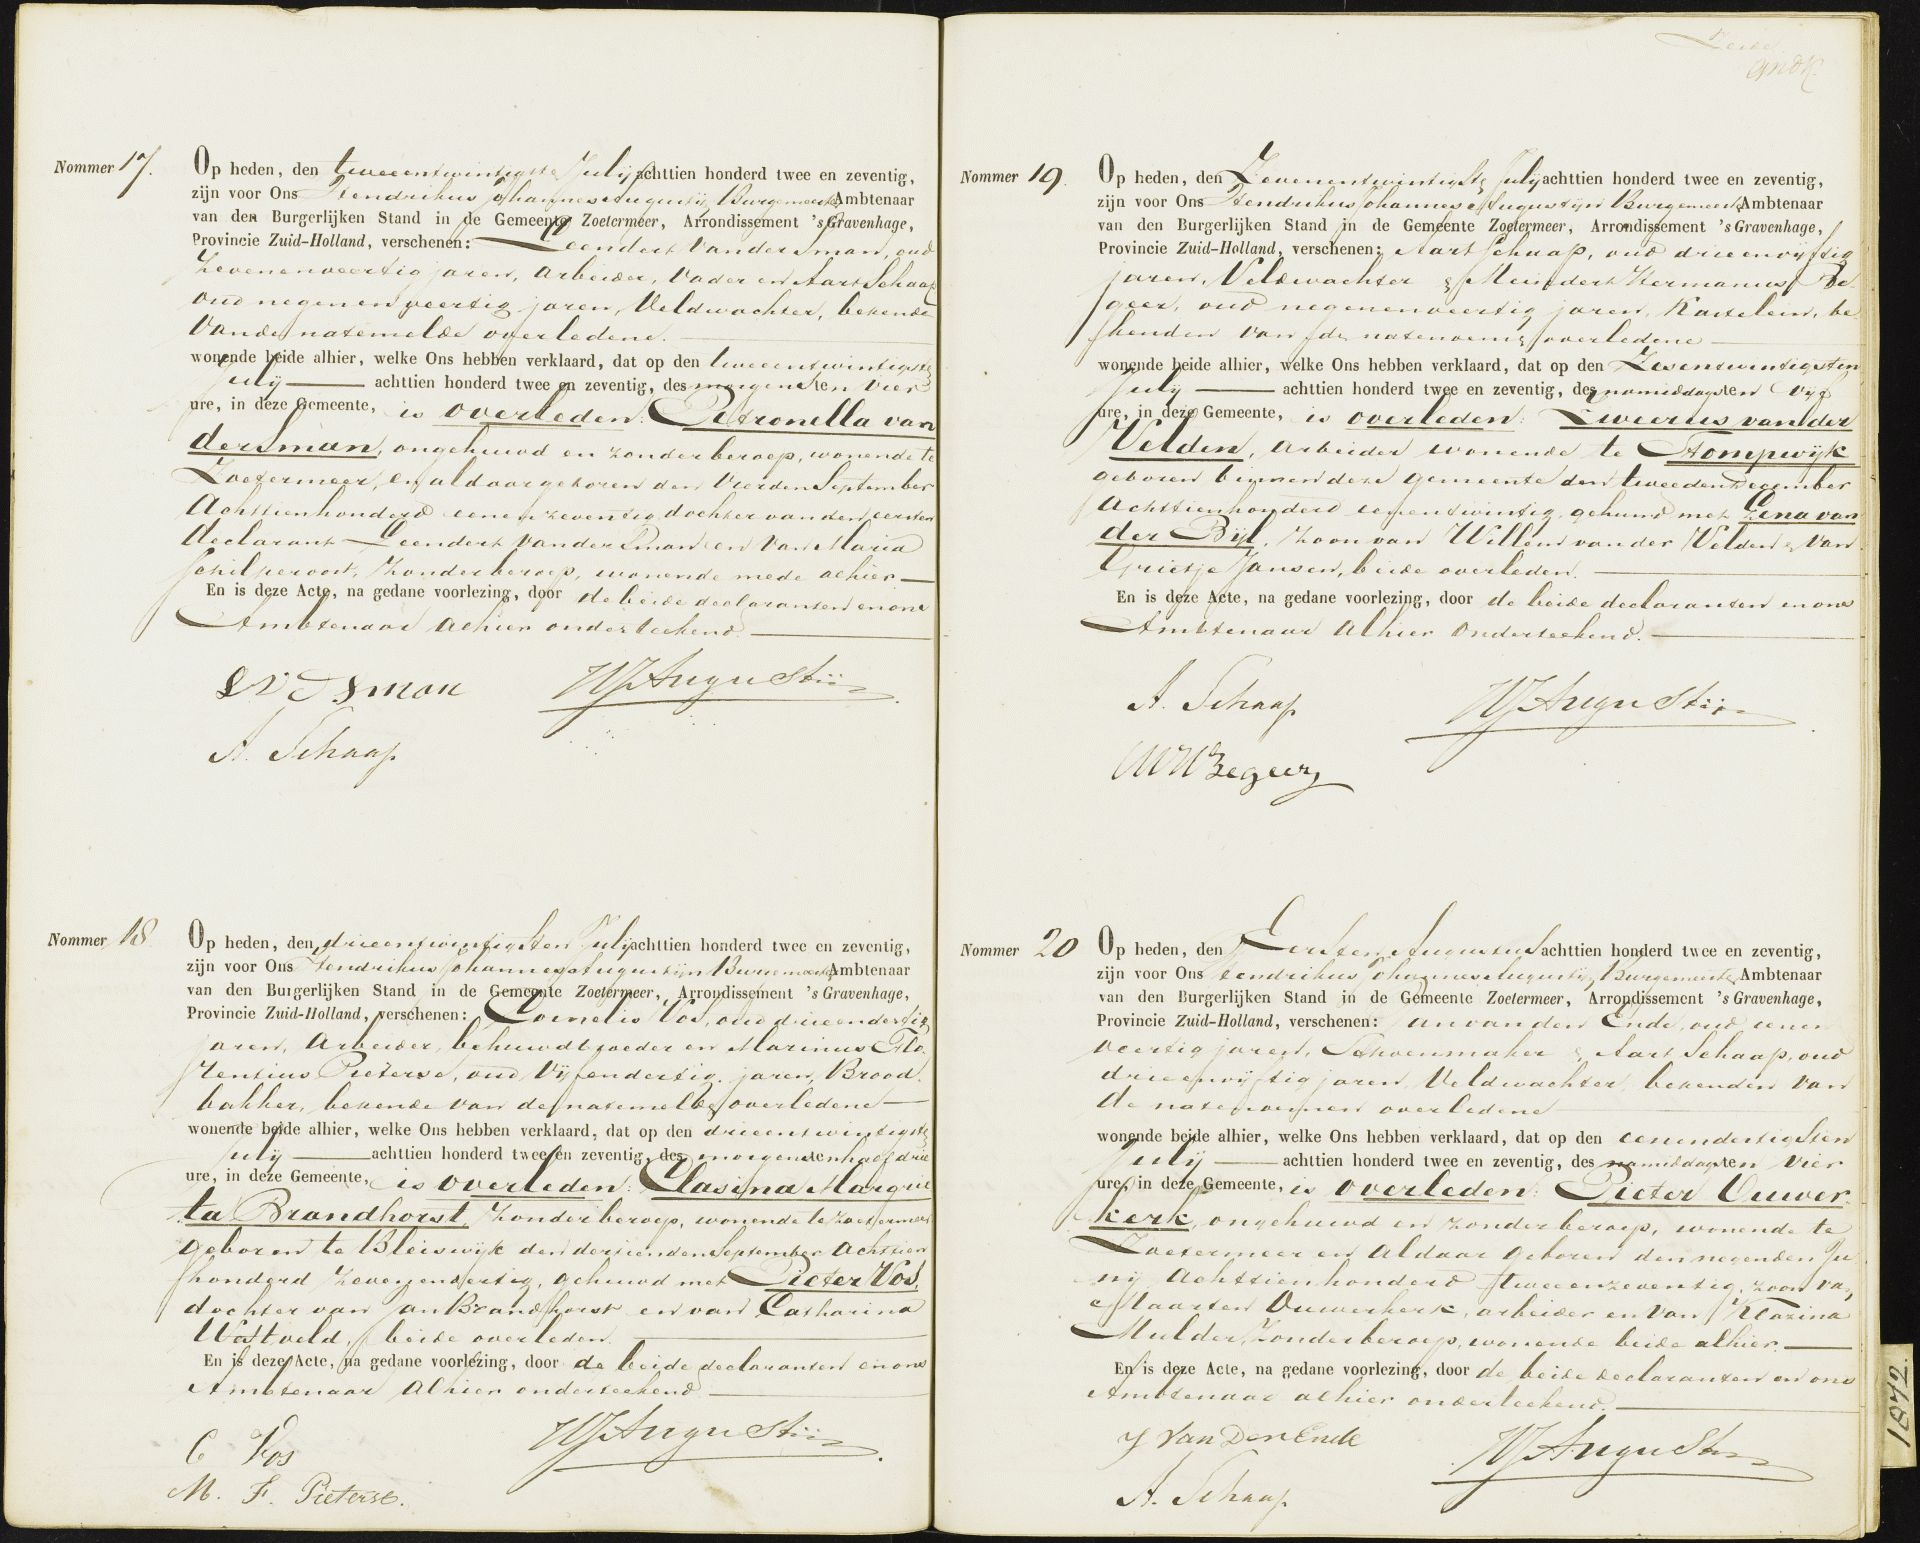 Nommer 17.
Op heden, den tweeentwintigste Julij achttien honderd twee en zeventig,
zijn voor Ons Hendrikus Johannes Augustijn Burgemeester Ambtenaar
van den Burgerlijken Stand in de Gemeente Zoetermeer, Arrondissement 's Gravenhage,
Provincie Zuid-Holland, verschenen: Leendert van der Sman, oud
Zevenenveertig jaren, Arbeider, Vader en Aart Schaap
oud negenenveertig jaren, Veldwachter, bekende
van de natemelde overledene.
wonende beide alhier, welke Ons hebben verklaard, dat op den tweeentwintigste
July achttien honderd twee en zeventig, des morgens ten vier
ure, in deze Gemeente, is overleden: Petronella van
der Sman, ongehuwd en zonder beroep, wonende te
Zoetermeer, en aldaar geboren den vierden September
Achttienhonderd eenenzeventig dochter van den eersten
declarant Leendert van der Sman en van Maria
Schilperoort, zonder beroep, wonende mede alhier
En is deze Acte, na gedane voorlezing, door de beide declaranten en ons
Ambtenaar alhier onderteekend.
L V D Sman HJAugustijn
A. Schaap
Nommer 18.
Op heden, den drieentwintigsten Julij achttien honderd twee en zeventig,
zijn voor Ons Hendrikus Johannes Augustijn Burgemeester Ambtenaar
van den Burgerlijken Stand in de Gemeente Zoetermeer, Arrondissement 's Gravenhage,
Provincie Zuid-Holland, verschenen: Cornelis Vos, oud drieendertig
jaren, Arbeider, behuwdbroeder en Marinus Flo-
rentius Pieterse, oud Vijfendertig jaren, Brood-
bakker, bekende van de natemelde overledene
wonende beide alhier, welke Ons hebben verklaard, dat op den drieentwintigste
July achttien honderd twee en zeventig, des morgens ten half drie
ure, in deze Gemeente, is overleden: Clasina Margrie
ta Brandhorst, zonder beroep, wonende te Zoetermeer
geboren te Bleiswijk den dertienden September Achttien
honderd zevenendertig, gehuwd met Pieter Vos,
dochter van Jan Brandhorst en van Catharina
Wostveld, beide overleden.
En is deze Acte, na gedane voorlezing, door de beide declaranten en ons
Ambtenaar alhier onderteekend
C Vos HJAugustijn
M. F. Pieterse.
Nommer 19.
Op heden, den Zevenentwintigste Julij achttien honderd twee en zeventig,
zijn voor Ons Hendrikus Johannes Augustijn Burgemeester Ambtenaar
van den Burgerlijken Stand in de Gemeente Zoetermeer, Arrondissement 's Gravenhage,
Provincie Zuid-Holland, verschenen: Aart Schaap, oud drieenvijftig
jaren, Veldwachter & Meindert Hermanus Ze-
geer, oud negenenveertig jaren, Kastelein, be
kenden van de natenoemene overledene
wonende beide alhier, welke Ons hebben verklaard, dat op den Zesentwintigsten
July achttien honderd twee en zeventig, des namiddags ten Vijf
ure, in deze Gemeente, is overleden: Zweerus van der
Velden, Arbeider wonende te Stompwijk
geboren binnen deze gemeente den tweeden December
Achttienhonderd eenentwintig, gehuwd met Lena van
der Bijl, Zoon van Willem van der Velden & van
Grietje Jansen, beide overleden.
En is deze Acte, na gedane voorlezing, door de beide declaranten en ons
Ambtenaar alhier onderteekend.
A. Schaap HJAugustijn
MH Zegeer
Nommer 20
Op heden, den Eersten Augustus achttien honderd twee en zeventig,
zijn voor Ons Hendrikus Johannes Augustijn Burgemeester Ambtenaar
van den Burgerlijken Stand in de Gemeente Zoetermeer, Arrondissement 's Gravenhage,
Provincie Zuid-Holland, verschenen: Jan van den Ende, oud eenen
veertig jaren, Schoenmaker & Aart Schaap, oud
drieenvijftig jaren, Veldwachter, bekenden van
de natenoemen overledene
wonende beide alhier, welke Ons hebben verklaard, dat op den eenendertigsten
July achttien honderd twee en zeventig, des namiddags ten vier
ure, in deze Gemeente, is overleden: Pieter Ouwer-
kerk, ongehuwd en zonder beroep, wonende te
Zoetermeer en Aldaar geboren den negenden Ju
nij Achttienhonderd tweeenzeventig, zoon van
Maarten Ouwerkerk, arbeider en van Klazina
Mulder, zonder beroep, wonende beide alhier.
En is deze Acte, na gedane voorlezing, door de beide declaranten en ons
Ambtenaar alhier onderteekend.
J Van Den Ende HJAugustijn
A. Schaap
1872.